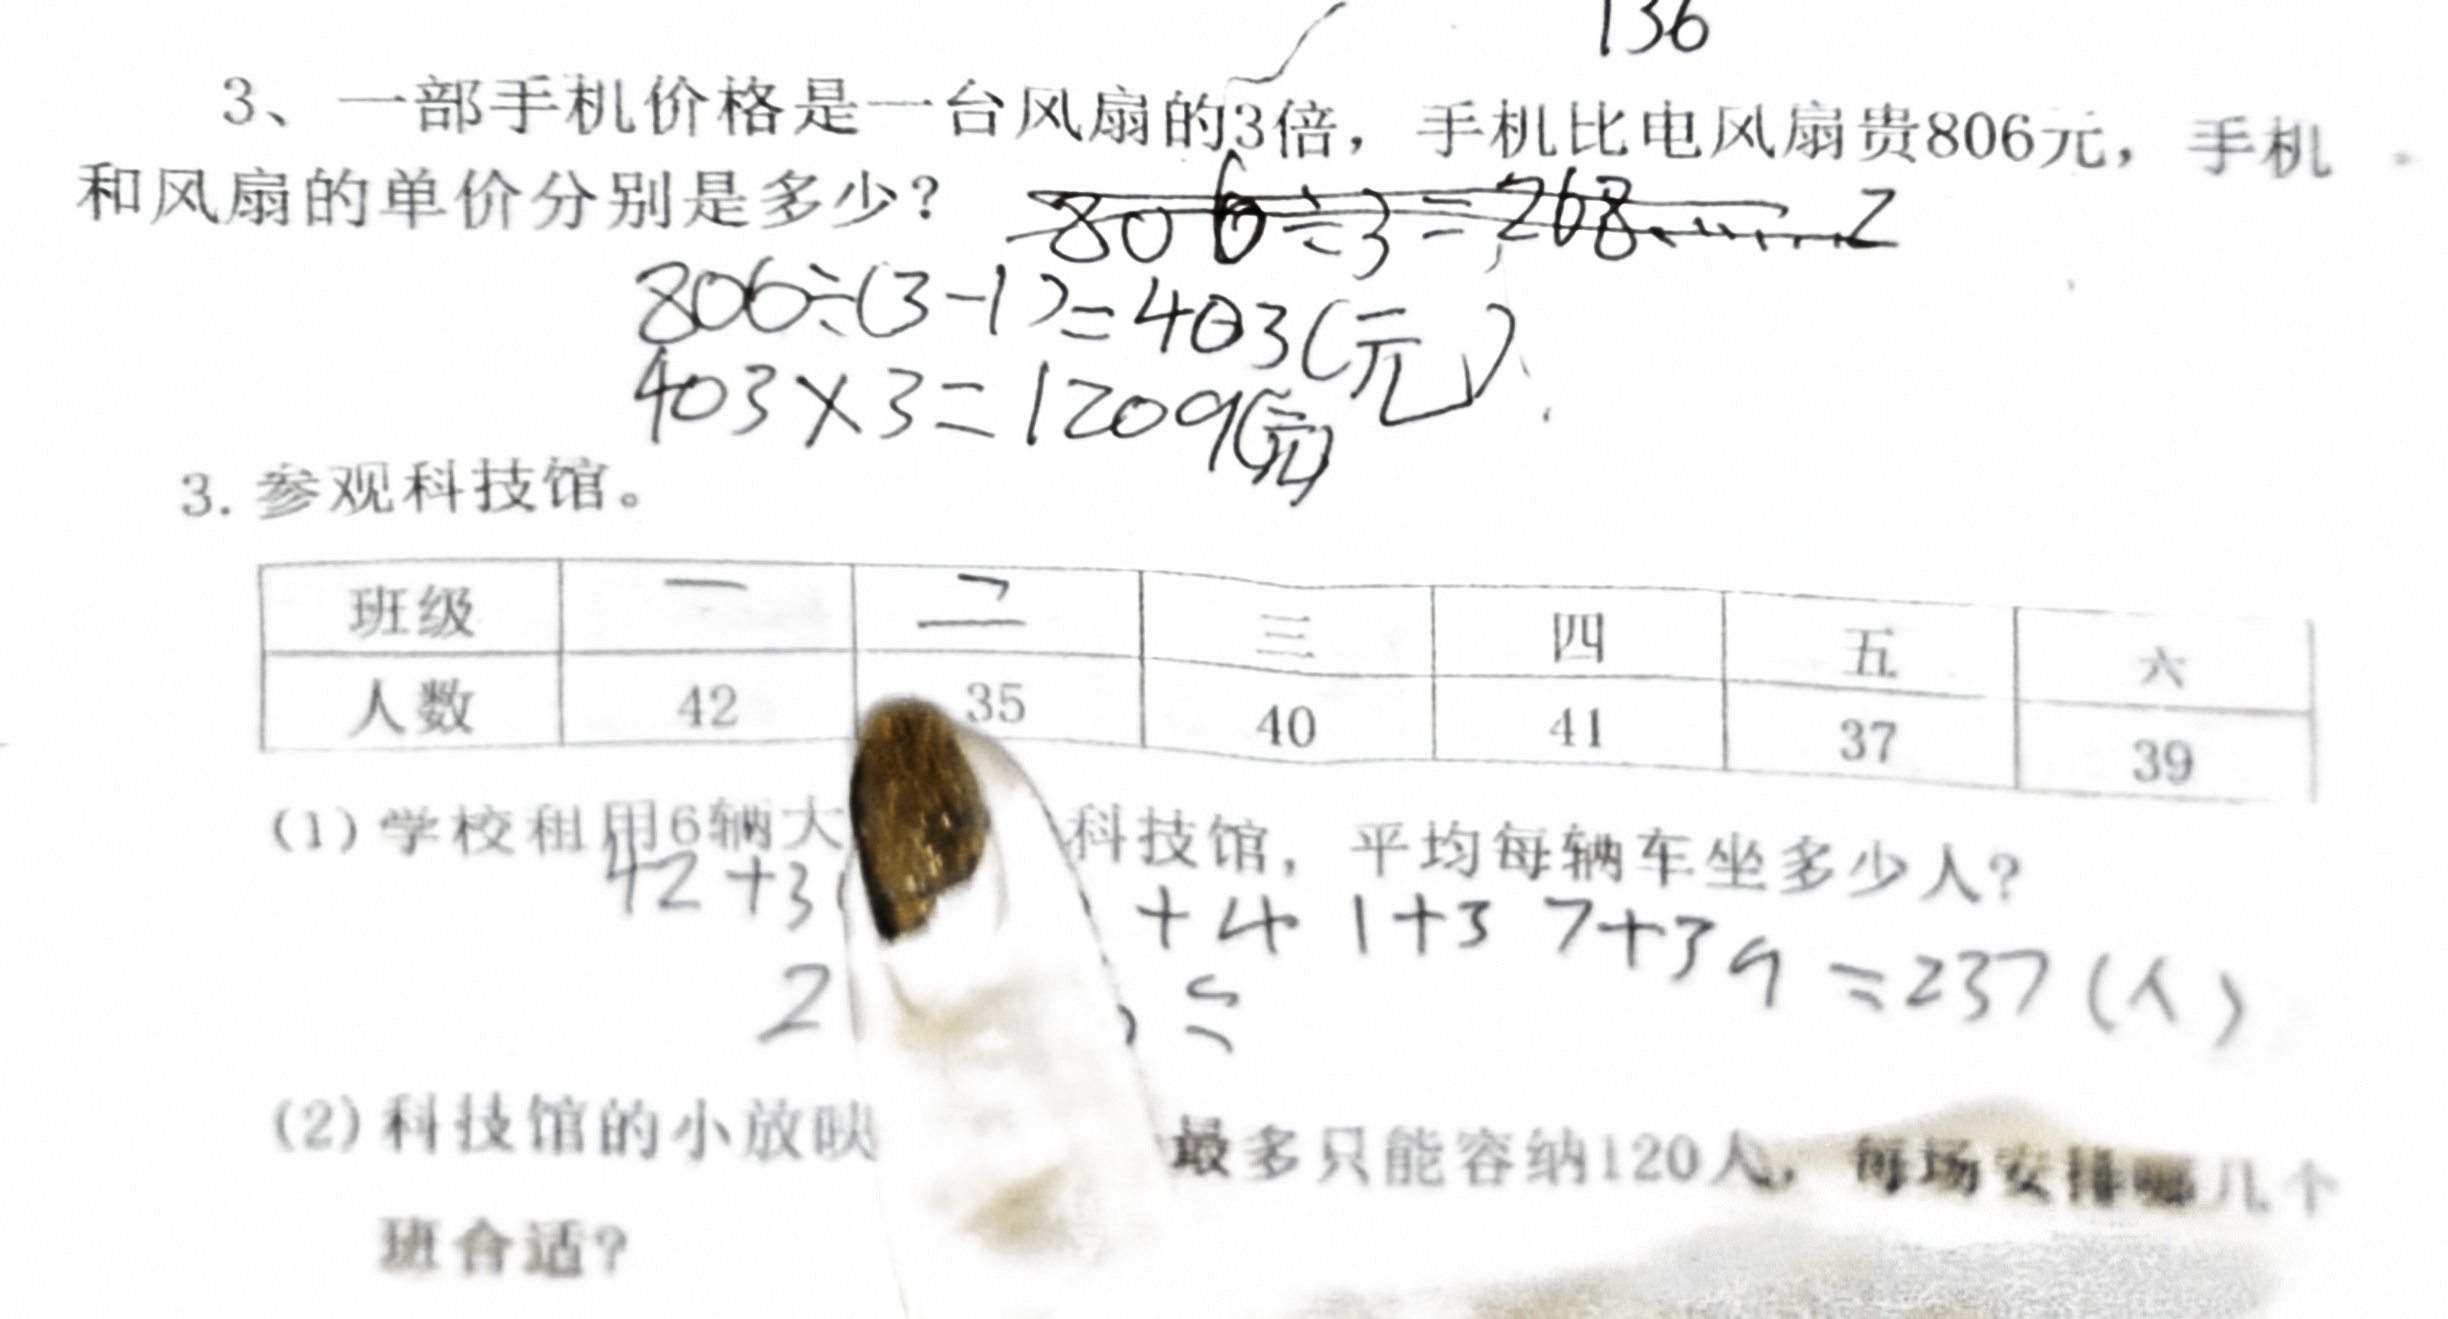 136
3、一部手机价格是一台风扇的3倍，手机比电风扇贵806元，手机
和风扇的单价分别是多少？
806÷3=268......2
806÷(3-1)=403(元)
403×3=1209(元)
3. 参观科技馆。
班级 一 二 三 四 五 六
人数 42 35 40 41 37 39
(1) 学校租用6辆大 科技馆，平均每辆车坐多少人？
42+3 +41+37+39=237(人)
2
(2) 科技馆的小放映 最多只能容纳120人，每场安排哪几个
班合适？